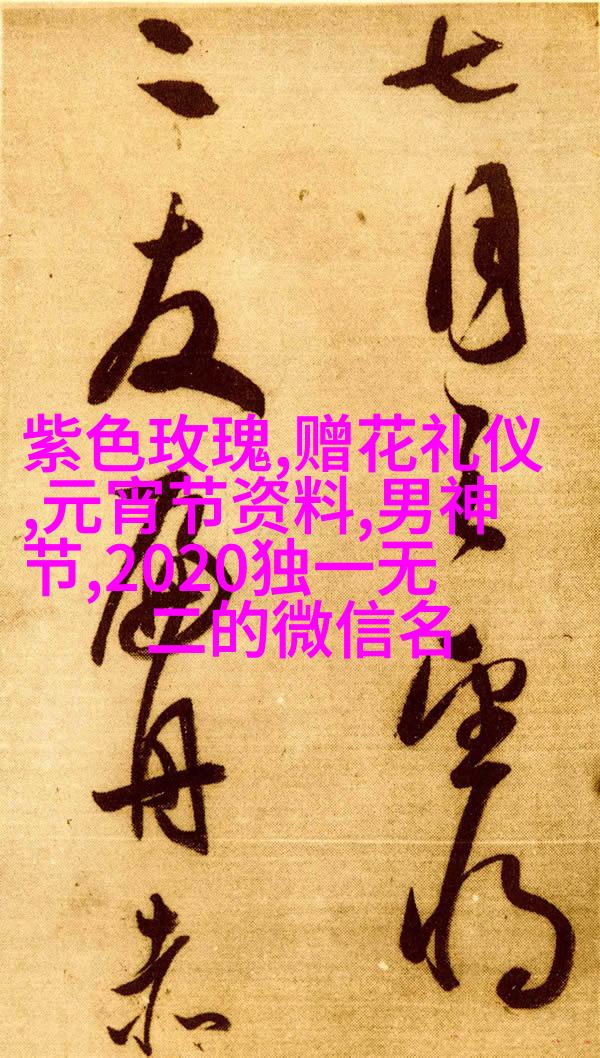 七月之望将
二友扁舟赤
紫色玫瑰,赠花礼仪
,元宵节资料,男神
节,2020独一无
二的微信名